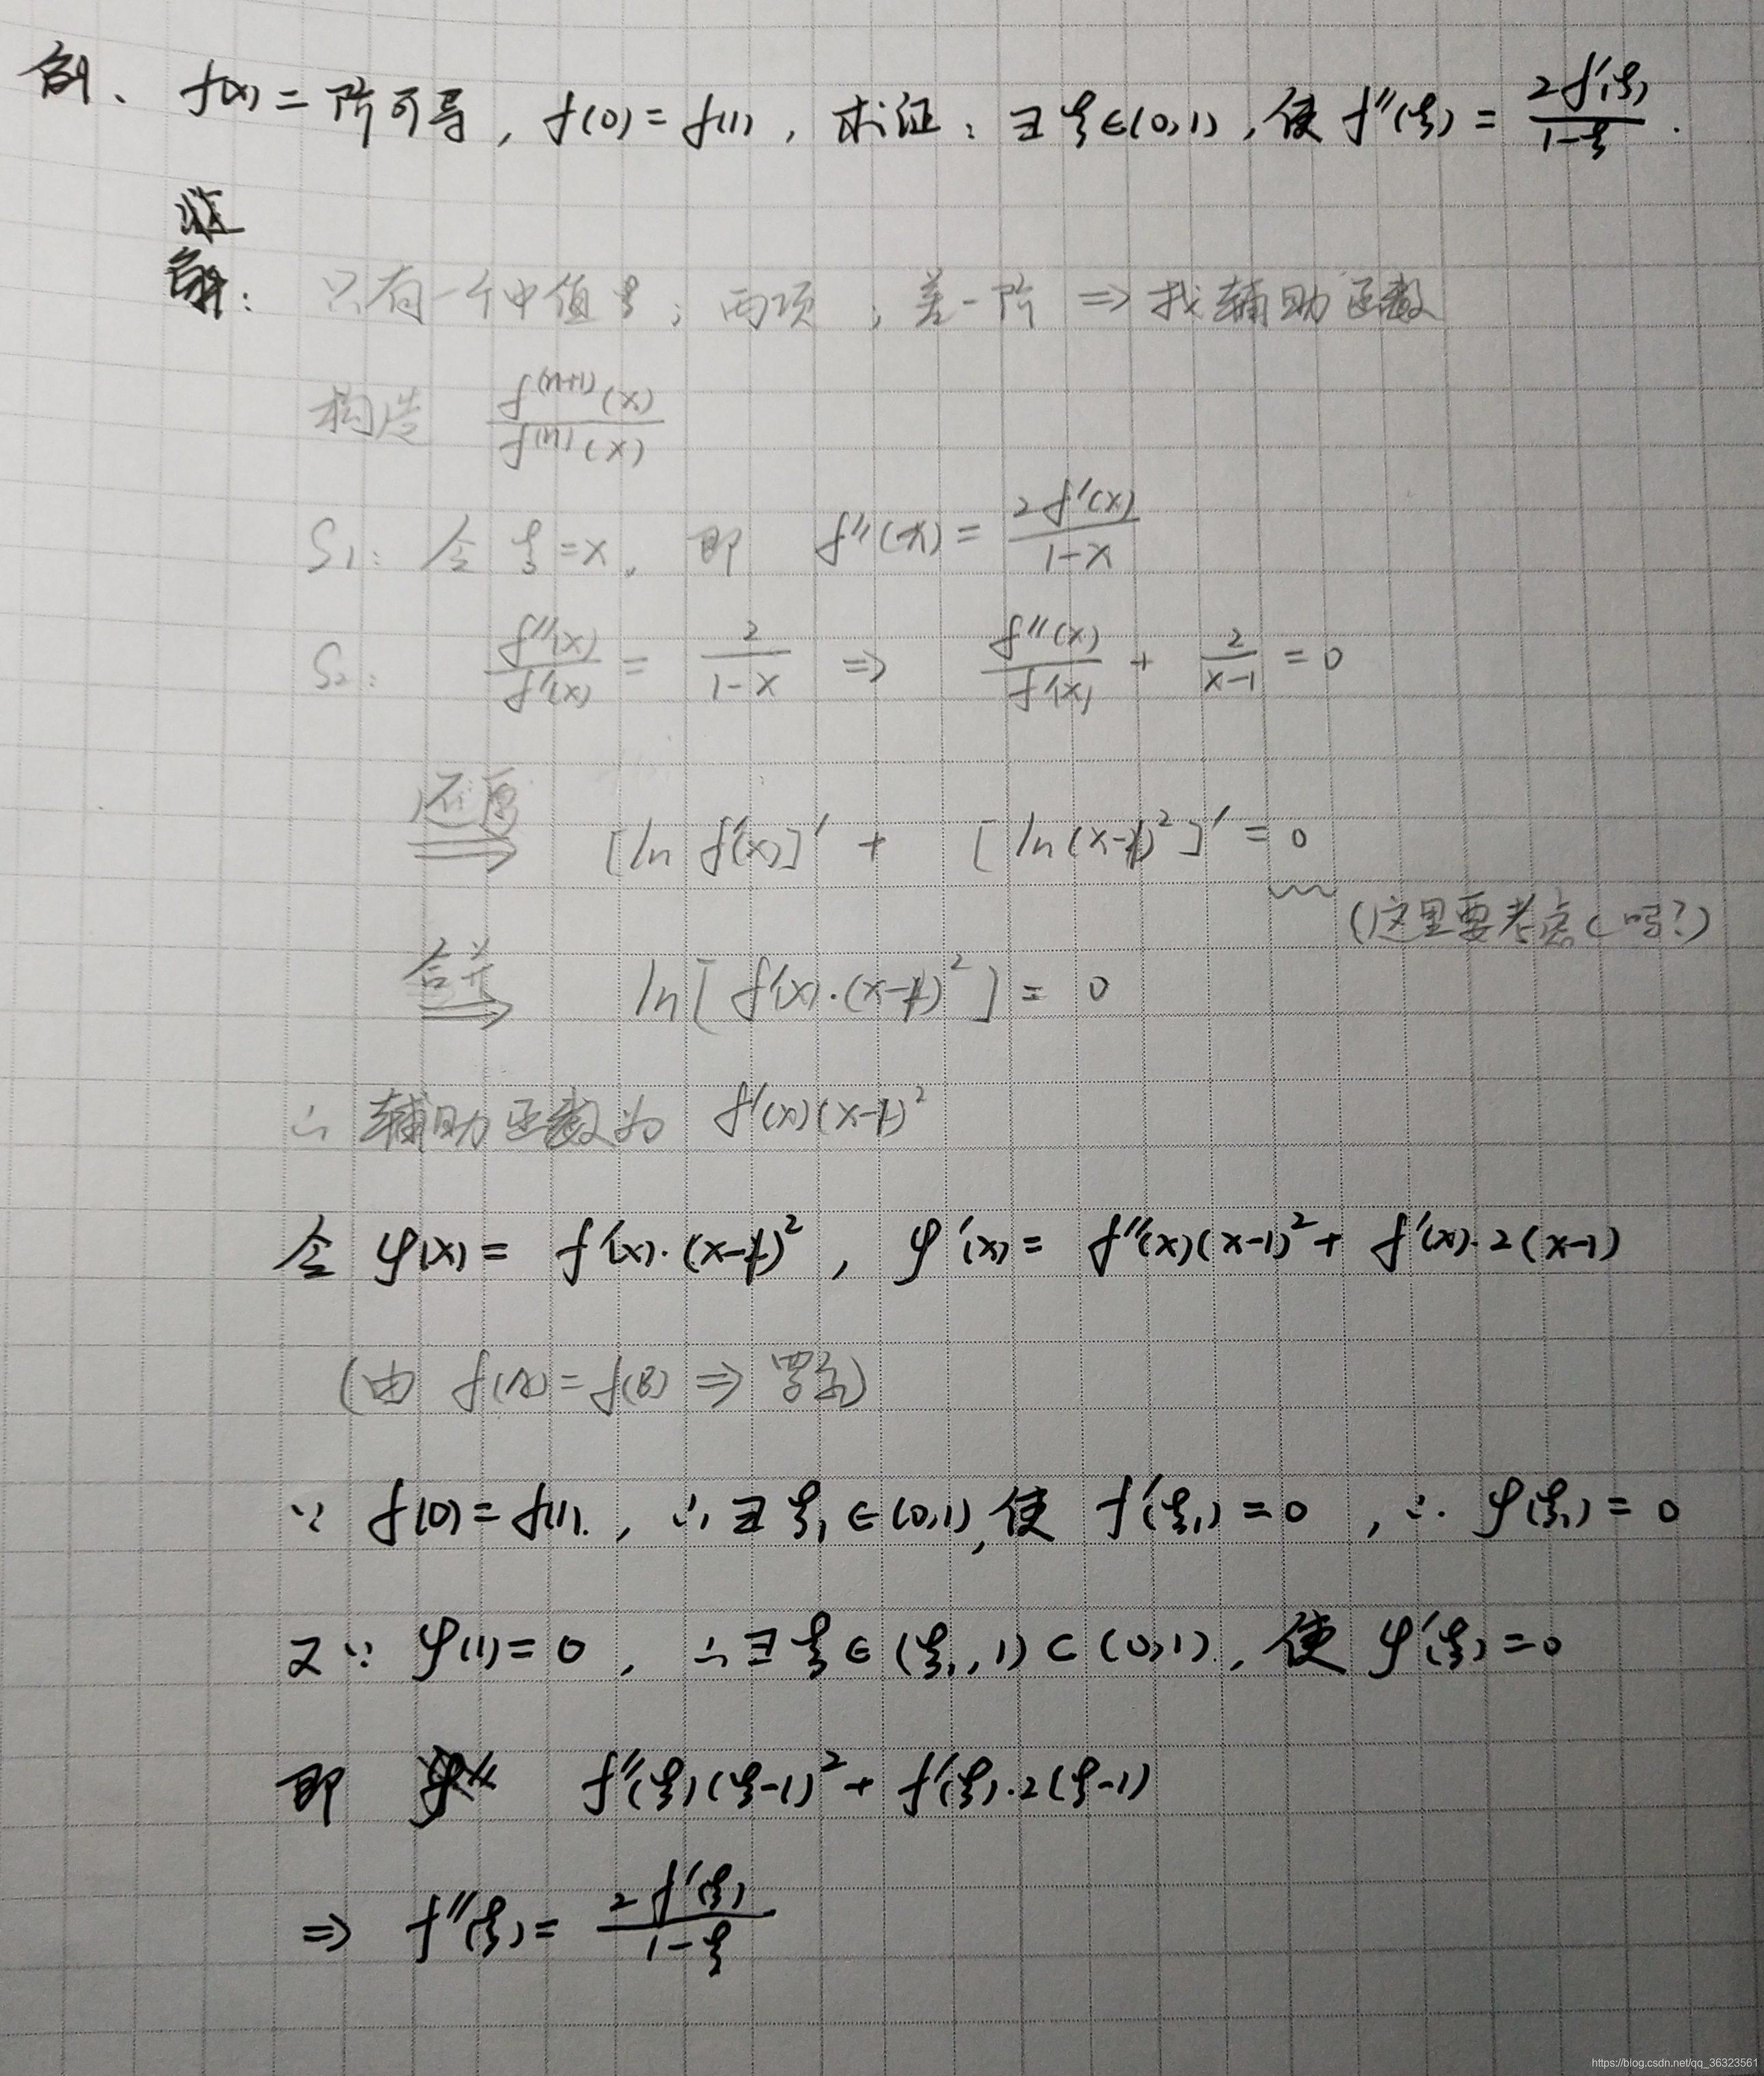 例、f(x)二阶可导，f(0)=f(1)，求证：∃ξ∈(0,1)，使f''(ξ)=2f'(ξ)/(1-ξ).
证
解：只有一个中值ξ；两项；差一阶⇒找辅助函数
构造 f^(n+1)(x)/f^(n)(x)
S1：令ξ=x，即 f''(x)=2f'(x)/(1-x)
S2：f''(x)/f'(x)=2/(1-x) ⇒ f''(x)/f'(x)+2/(x-1)=0
还原⇒ [ln f'(x)]'+[ln(x-1)²]'=0
(这里要考虑C吗?)
合并⇒ ln[f'(x)·(x-1)²]=0
∴辅助函数为 f'(x)(x-1)²
令φ(x)=f'(x)·(x-1)²，φ'(x)=f''(x)(x-1)²+f'(x)·2(x-1)
(由f(A)=f(B)⇒罗尔)
∵f(0)=f(1)，∴∃ξ₁∈(0,1)，使f'(ξ₁)=0，∴φ(ξ₁)=0
又∵φ(1)=0，∴∃ξ∈(ξ₁,1)⊂(0,1)，使φ'(ξ)=0
即 f''(ξ)(ξ-1)²+f'(ξ)·2(ξ-1)
⇒ f''(ξ)=2f'(ξ)/(1-ξ)
https://blog.csdn.net/qq_36323561